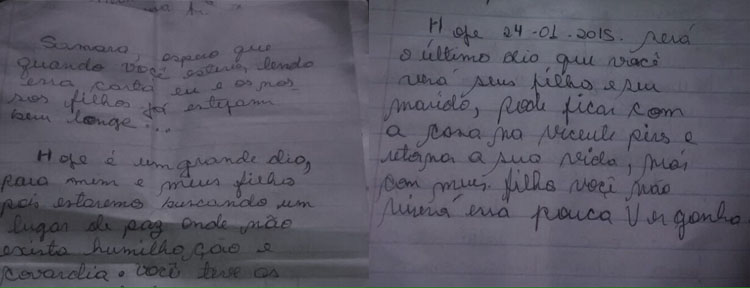 Samara, espero que
quando você estiver lendo
essa carta eu e os nos
sos filhos já estejam
bem longe...
Hoje é um grande dia,
para mim e meus filho
pois estaremo buscando um
lugar de paz onde não
exista humilhação e
covardia. você teve os
Hoje 24-01.2015. será
o último dia que você
verá seus filho e seu
marido, pode ficar com
a casa na vicente pires e
retorna a sua vida, mas
com meus filho você não
viverá essa pouca Vergonha